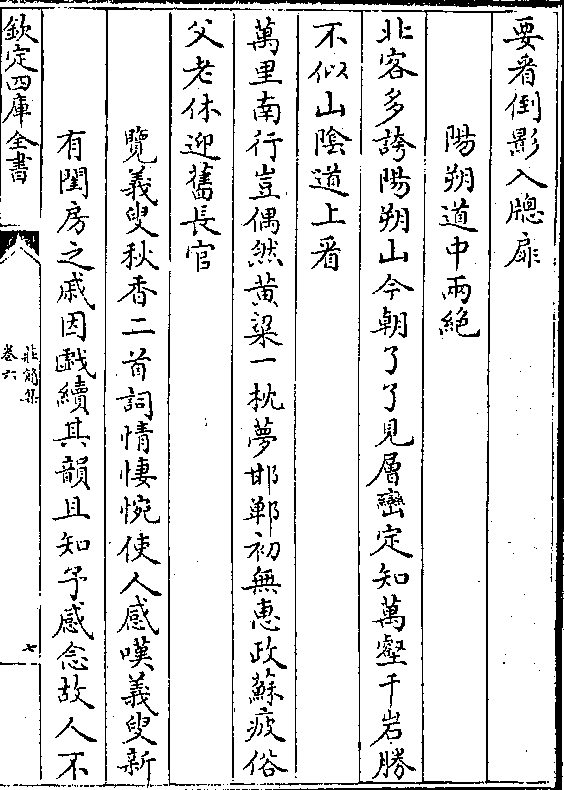 要看倒影入牕扉
陽朔道中兩絶
北客多誇陽朔山今朝了了見層巒定知萬壑千岩勝
不似山陰道上看
萬里南行豈偶然黄粱一枕夢邯鄲初無惠政蘇疲俗
父老休迎舊長官
覽義叟秋香二首詞情悽惋使人感嘆義叟新
有閨房之戚因戲續其韻且知予感念故人不
欽定四庫全書
莊簡集
卷六
七